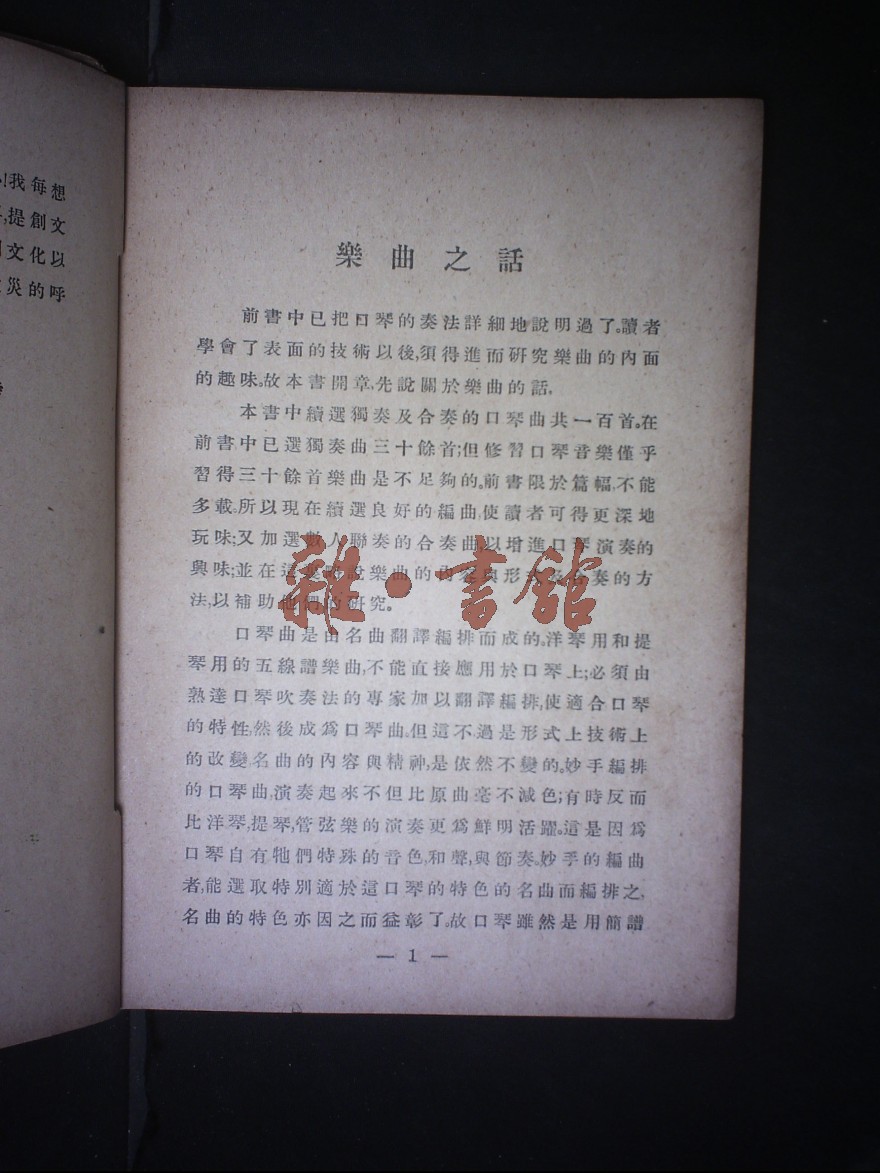 我每想
提創文
文化以
災的呼
樂曲之話
前書中已把口琴的奏法詳細地說明過了。讀者
學會了表面的技術以後,須得進而研究樂曲的內面
的趣味。故本書開章,先說關於樂曲的話.
本書中續選獨奏及合奏的口琴曲共一百首。在
前書中已選獨奏曲三十餘首;但修習口琴音樂僅乎
習得三十餘首樂曲是不足夠的。前書限於篇幅,不能
多載。所以現在續選良好的編曲,使讀者可得更深地
玩味;又加選數人聯奏的合奏曲,以增進口琴演奏的
興味;並在這裏略說樂曲的內容與形式及合奏的方
法,以補助他們的研究。
口琴曲是由名曲翻譯編排而成的。洋琴用和提
琴用的五線譜樂曲,不能直接應用於口琴上;必須由
熟達口琴吹奏法的專家加以翻譯編排,使適合口琴
的特性,然後成爲口琴曲。但這不過是形式上技術上
的改變名曲的內容與精神,是依然不變的。妙手編排
的口琴曲,演奏起來不但比原曲毫不減色;有時反而
比洋琴,提琴,管弦樂的演奏更爲鮮明活躍。這是因爲
口琴自有牠們特殊的音色,和聲,與節奏。妙手的編曲
者,能選取特別適於這口琴的特色的名曲而編排之,
名曲的特色亦因之而益彰了。故口琴雖然是用簡譜
— 1 —
雜·書館